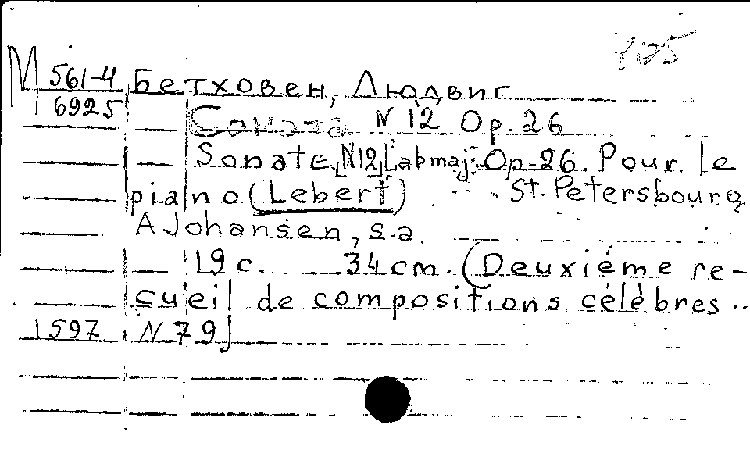 M 561-4 Бетховен, Людвиг
6925 Соната N 12 Op. 26
Sonate [N12][As maj] Op. 26. Pour le
piano (Lebert) St. Petersbourg
A Johansen, s.a.
19 c. 34 cm. (Deuxième re-
cueil de compositions célèbres..
1597 N 79)